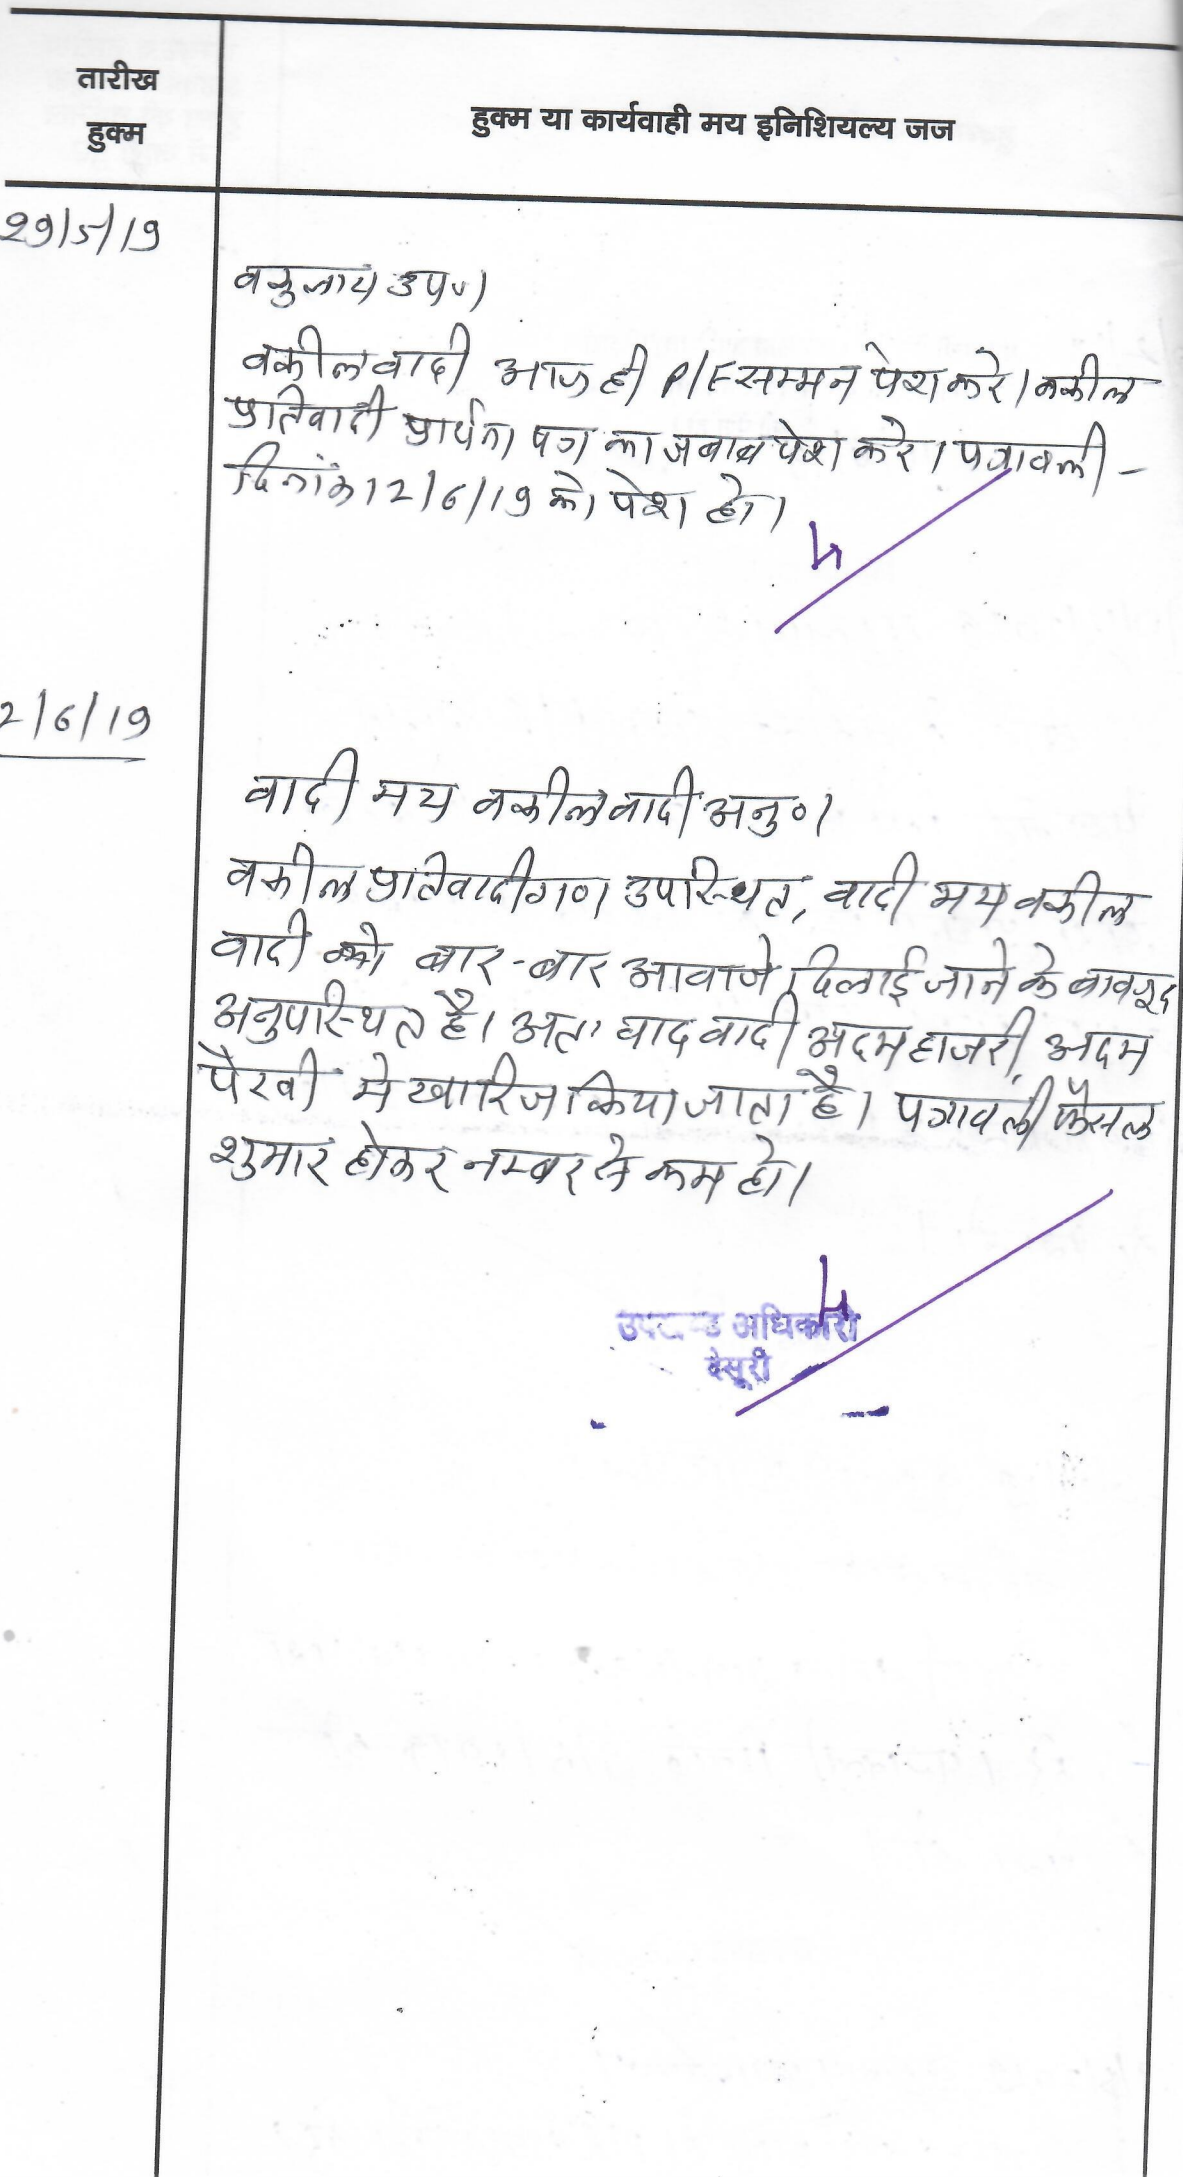 तारीख
हुक्म
हुक्म या कार्यवाही मय इनिशियल्य जज
29/5/19
वकुलाय उप०।
वकील वादी आज ही P/F सम्मन पेश करे। वकील
प्रतिवादी प्रार्थना पत्र का जबाब पेश करे। पत्रावली -
दिनांक 12/6/19 को पेश हो।
2/6/19
वादी मय वकील वादी अनु०।
वकील प्रतिवादीगण उपस्थित, वादी मय वकील
वादी को बार-बार आवाजे दिलाई जाने के बावजूद
अनुपस्थित है। अतः वाद वादी अदम हाजरी, अदम
पैरवी मे खारिज किया जाता है। पत्रावली फैसल
शुमार होकर नम्बर से कम हो।
उपखण्ड अधिकारी
देसूरी